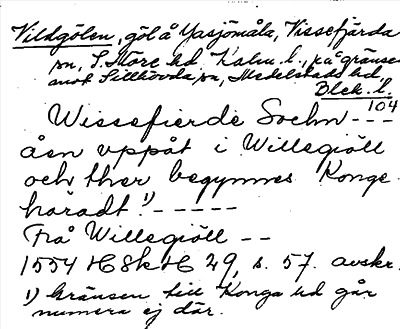 Vildgölen, göl å Yasjömåla, Vissefjärda
sn, S. Möre hd, Kalm. l., på gränsen
mot Sillhövda sn, Medelstads hd,
Blek. l.
104
Wissefierde Sochn - - -
åsn uppåt i Willegiöll
och ther begynnes Konge
häradt 1) - - - - -
Frå Willegiöll - -
1554 HSkH 29, s. 57. avskr.
1) Gränsen till Konga hd går
numera ej där.